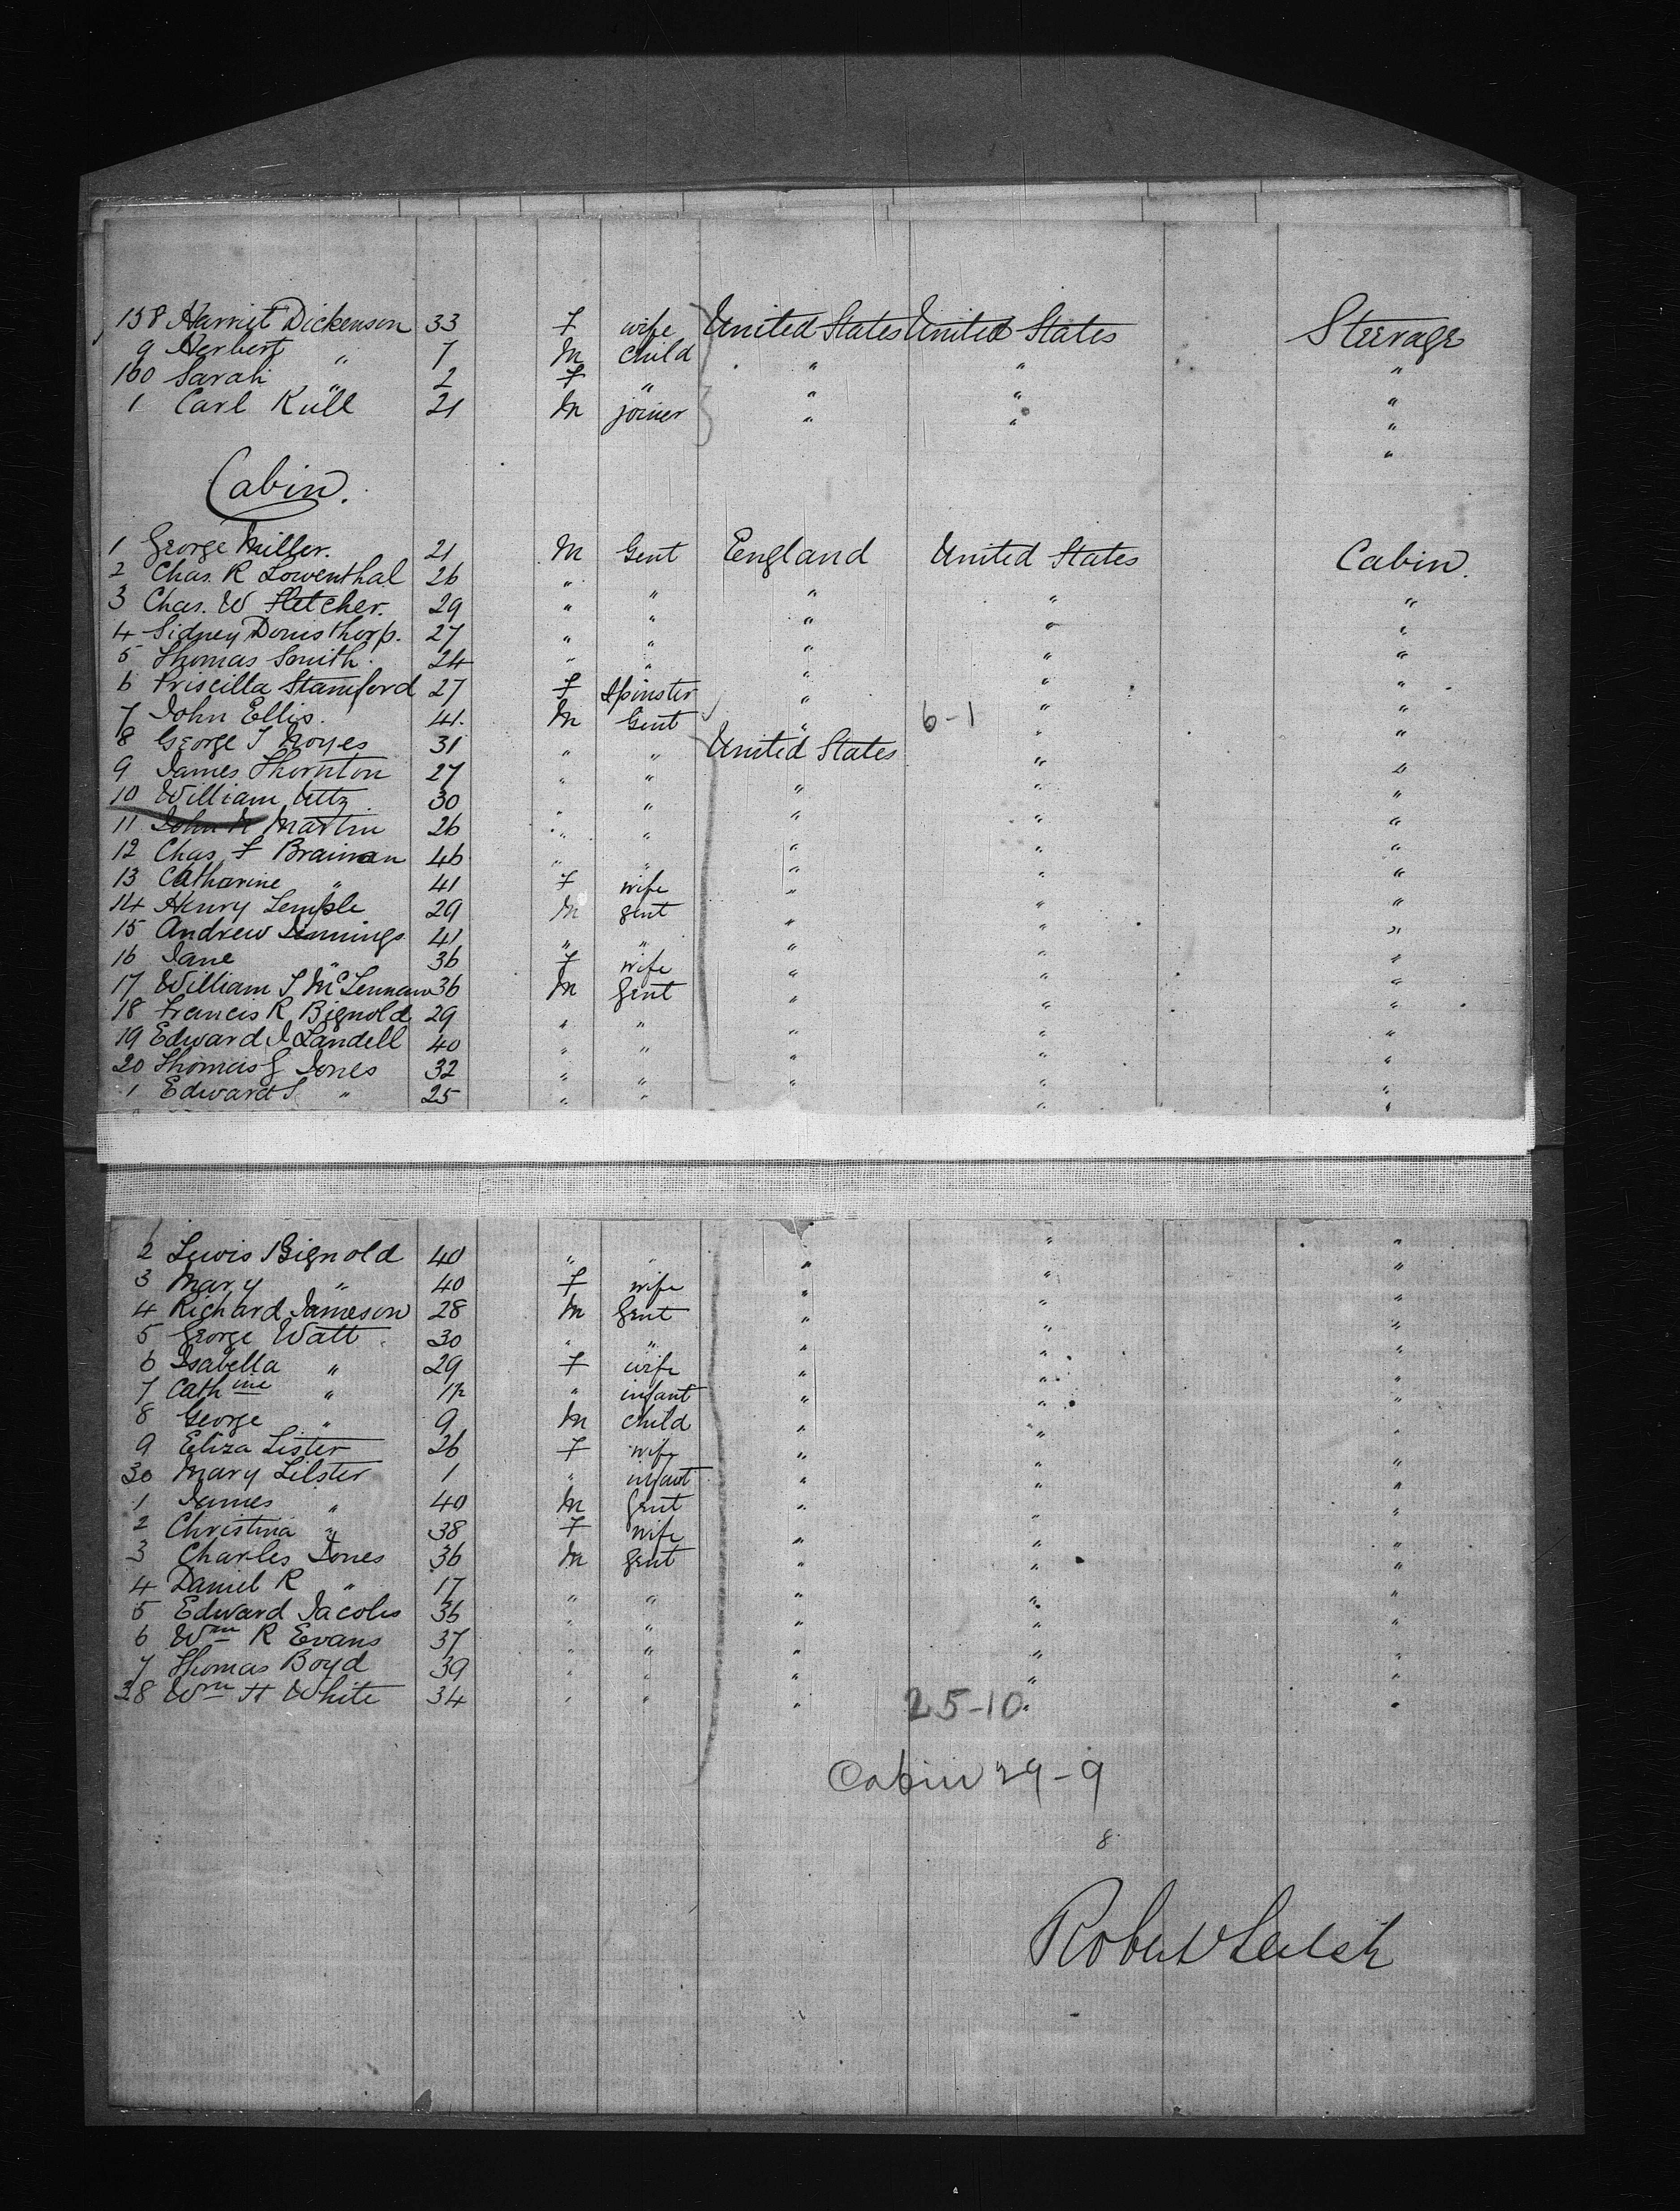 158 Harriet Dickenson 33 F wife United States United States Steerage
9 Herbert " 7 M child " " "
160 Sarah " 2 F " " " "
1 Carl Kull 21 M joiner " " "
"
Cabin.
1 George Miller. 21 M Gent Eengland United States Cabin.
2 Chas. R Lowenthal 26 " " " " "
3 Chas. W Fletcher. 29 " " " " "
4 Sidney Donisthorp. 27 " " " " "
5 Thomas Smith. 24 " " " " "
6 Priscilla Stamford 27 F Spinster " " "
7 John Ellis. 41. M Gent " 6-1 " "
8 George T Noyes 31 " " United States " "
9 James Thornton 27 " " " " "
10 William Uttz 30 " " " " "
11 John N Martin 26 " " " " "
12 Chas F Brainan 46 " " " " "
13 Catharine " 41 F wife " " "
14 Henry Temple 29 M gent " " "
15 Andrew Jennings 41 " " " " "
16 Jane " 36 F wife " " "
17 William S McLennan 36 M Gent " " "
18 Francis R Bignold 29 " " " " "
19 Edward J Landell 40 " " " " "
20 Thomas G Jones 32 " " " " "
1 Edward S " 25 " " " " "
2 Lewis Bignold 40 " " " " "
3 Mary " 40 F wife " " "
4 Richard Jameson 28 M Gent " " "
5 George Watt 30 " " " " "
6 Isabella " 29 F wife " " "
7 Cathine " " infant " " "
8 George " 9 M child " " "
9 Eliza Lister 26 F wife " " "
30 Mary Lilster 1 " infant " " "
1 James " 40 M Gent " " "
2 Christina " 38 F wife " " "
3 Charles Jones 36 M gent " " "
4 Daniel R " 17 " " " " "
5 Edward Jacobs 36 " " " " "
6 Wm R Evans 37 " " " " "
7 Thomas Boyd 39 " " " " "
38 Wm H White 34 " " " 25-10 " "
Cabin 29-9
8
Robert